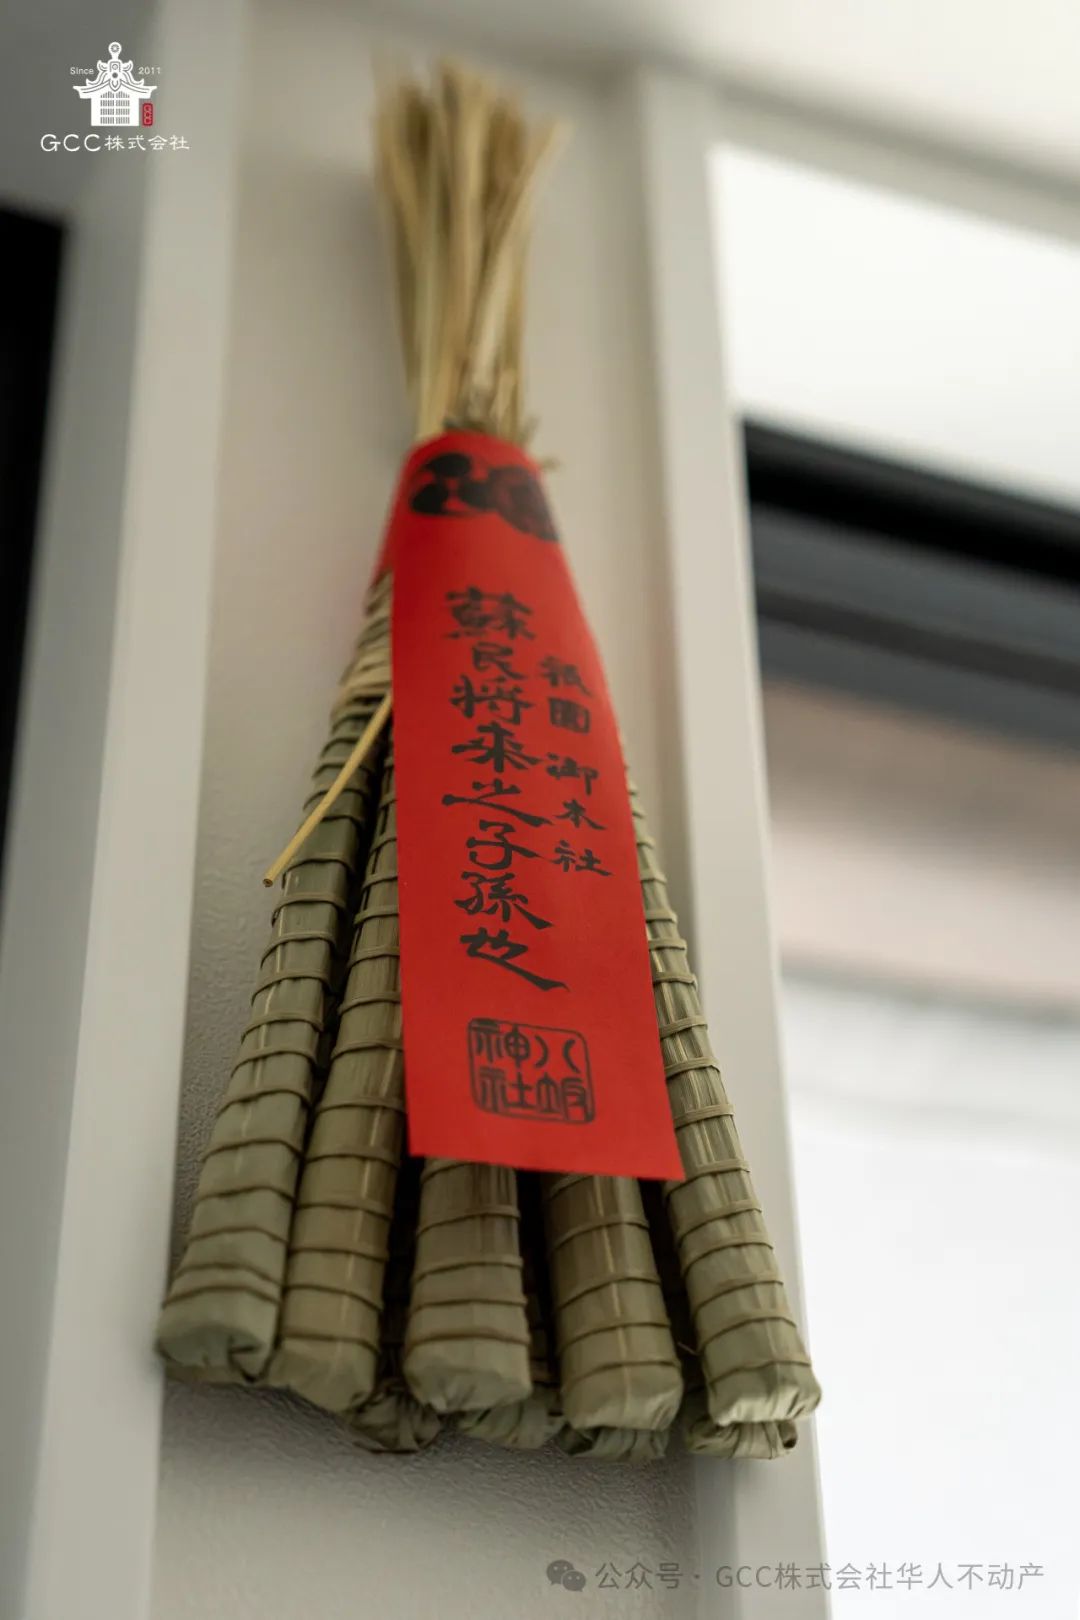 Since 2011
GCC
GCC株式会社
祇園 御本社
蘇民将来之子孫也
八坂
神社
公众号 · GCC株式会社华人不动产